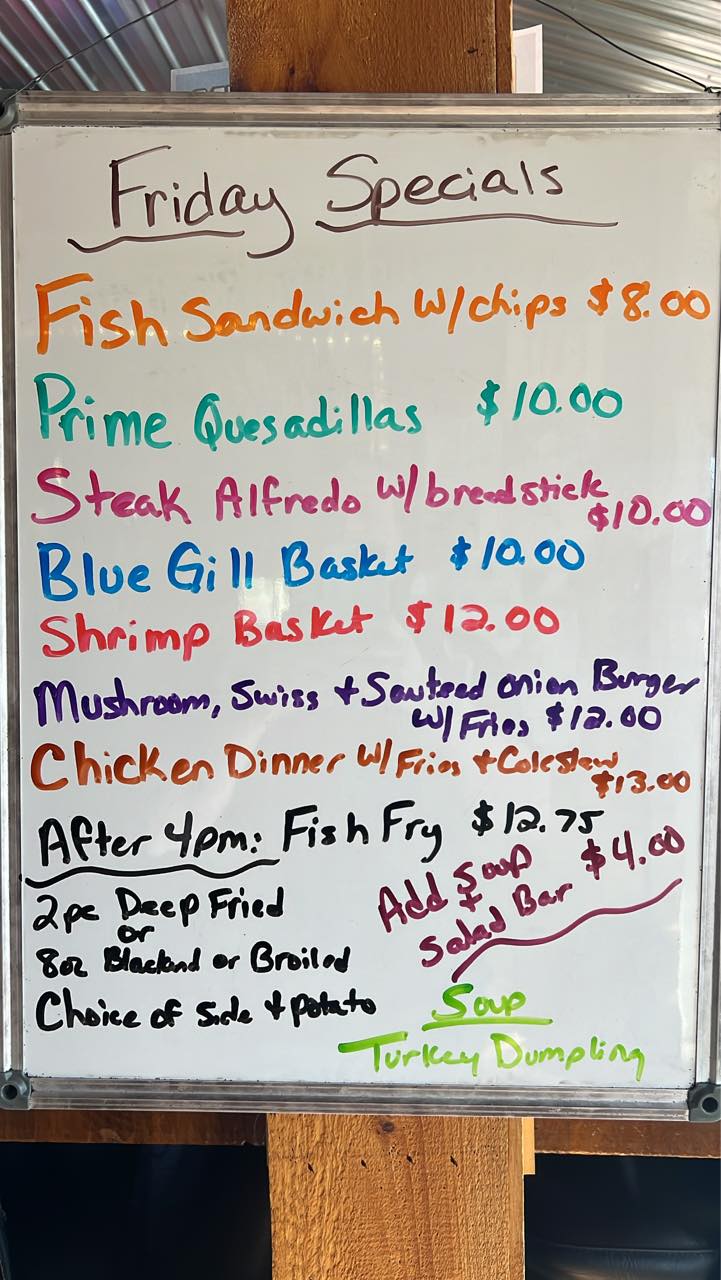 Friday Specials
Fish Sandwich w/chips $8.00
Prime Quesadillas $10.00
Steak Alfredo w/breadstick
$10.00
Blue Gill Basket $10.00
Shrimp Basket $12.00
Mushroom, Swiss + Sauteed onion Burger
w/ Fries $12.00
Chicken Dinner w/ Fries + Coleslaw
$13.00
After 4pm: Fish Fry $12.75
2pc Deep Fried
or
8oz Blackend or Broiled
Choice of side + potato
Add Soup $4.00
+
Salad Bar
Soup
Turkey Dumpling